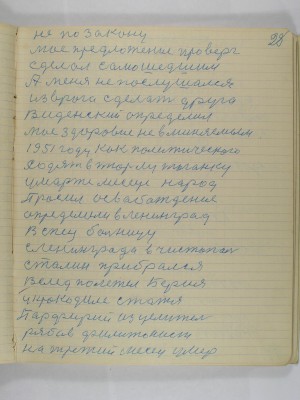 28
не по закону
мое предложение проверг
сделал самошедшим
А меня не послушался
изврога сделать друга
Виденский определил
мое здоровье не вминяемым
1951 году как политического
в марте месяце народ
Просил освабаждение
определили в Ленинград
В спец болницу
с Ленинграда в чистопол
сталин прибрался
Вслед полетел Берия
у крокодиле статя
Парфирий исцелител
рябов дмитокист
на третий месец умер